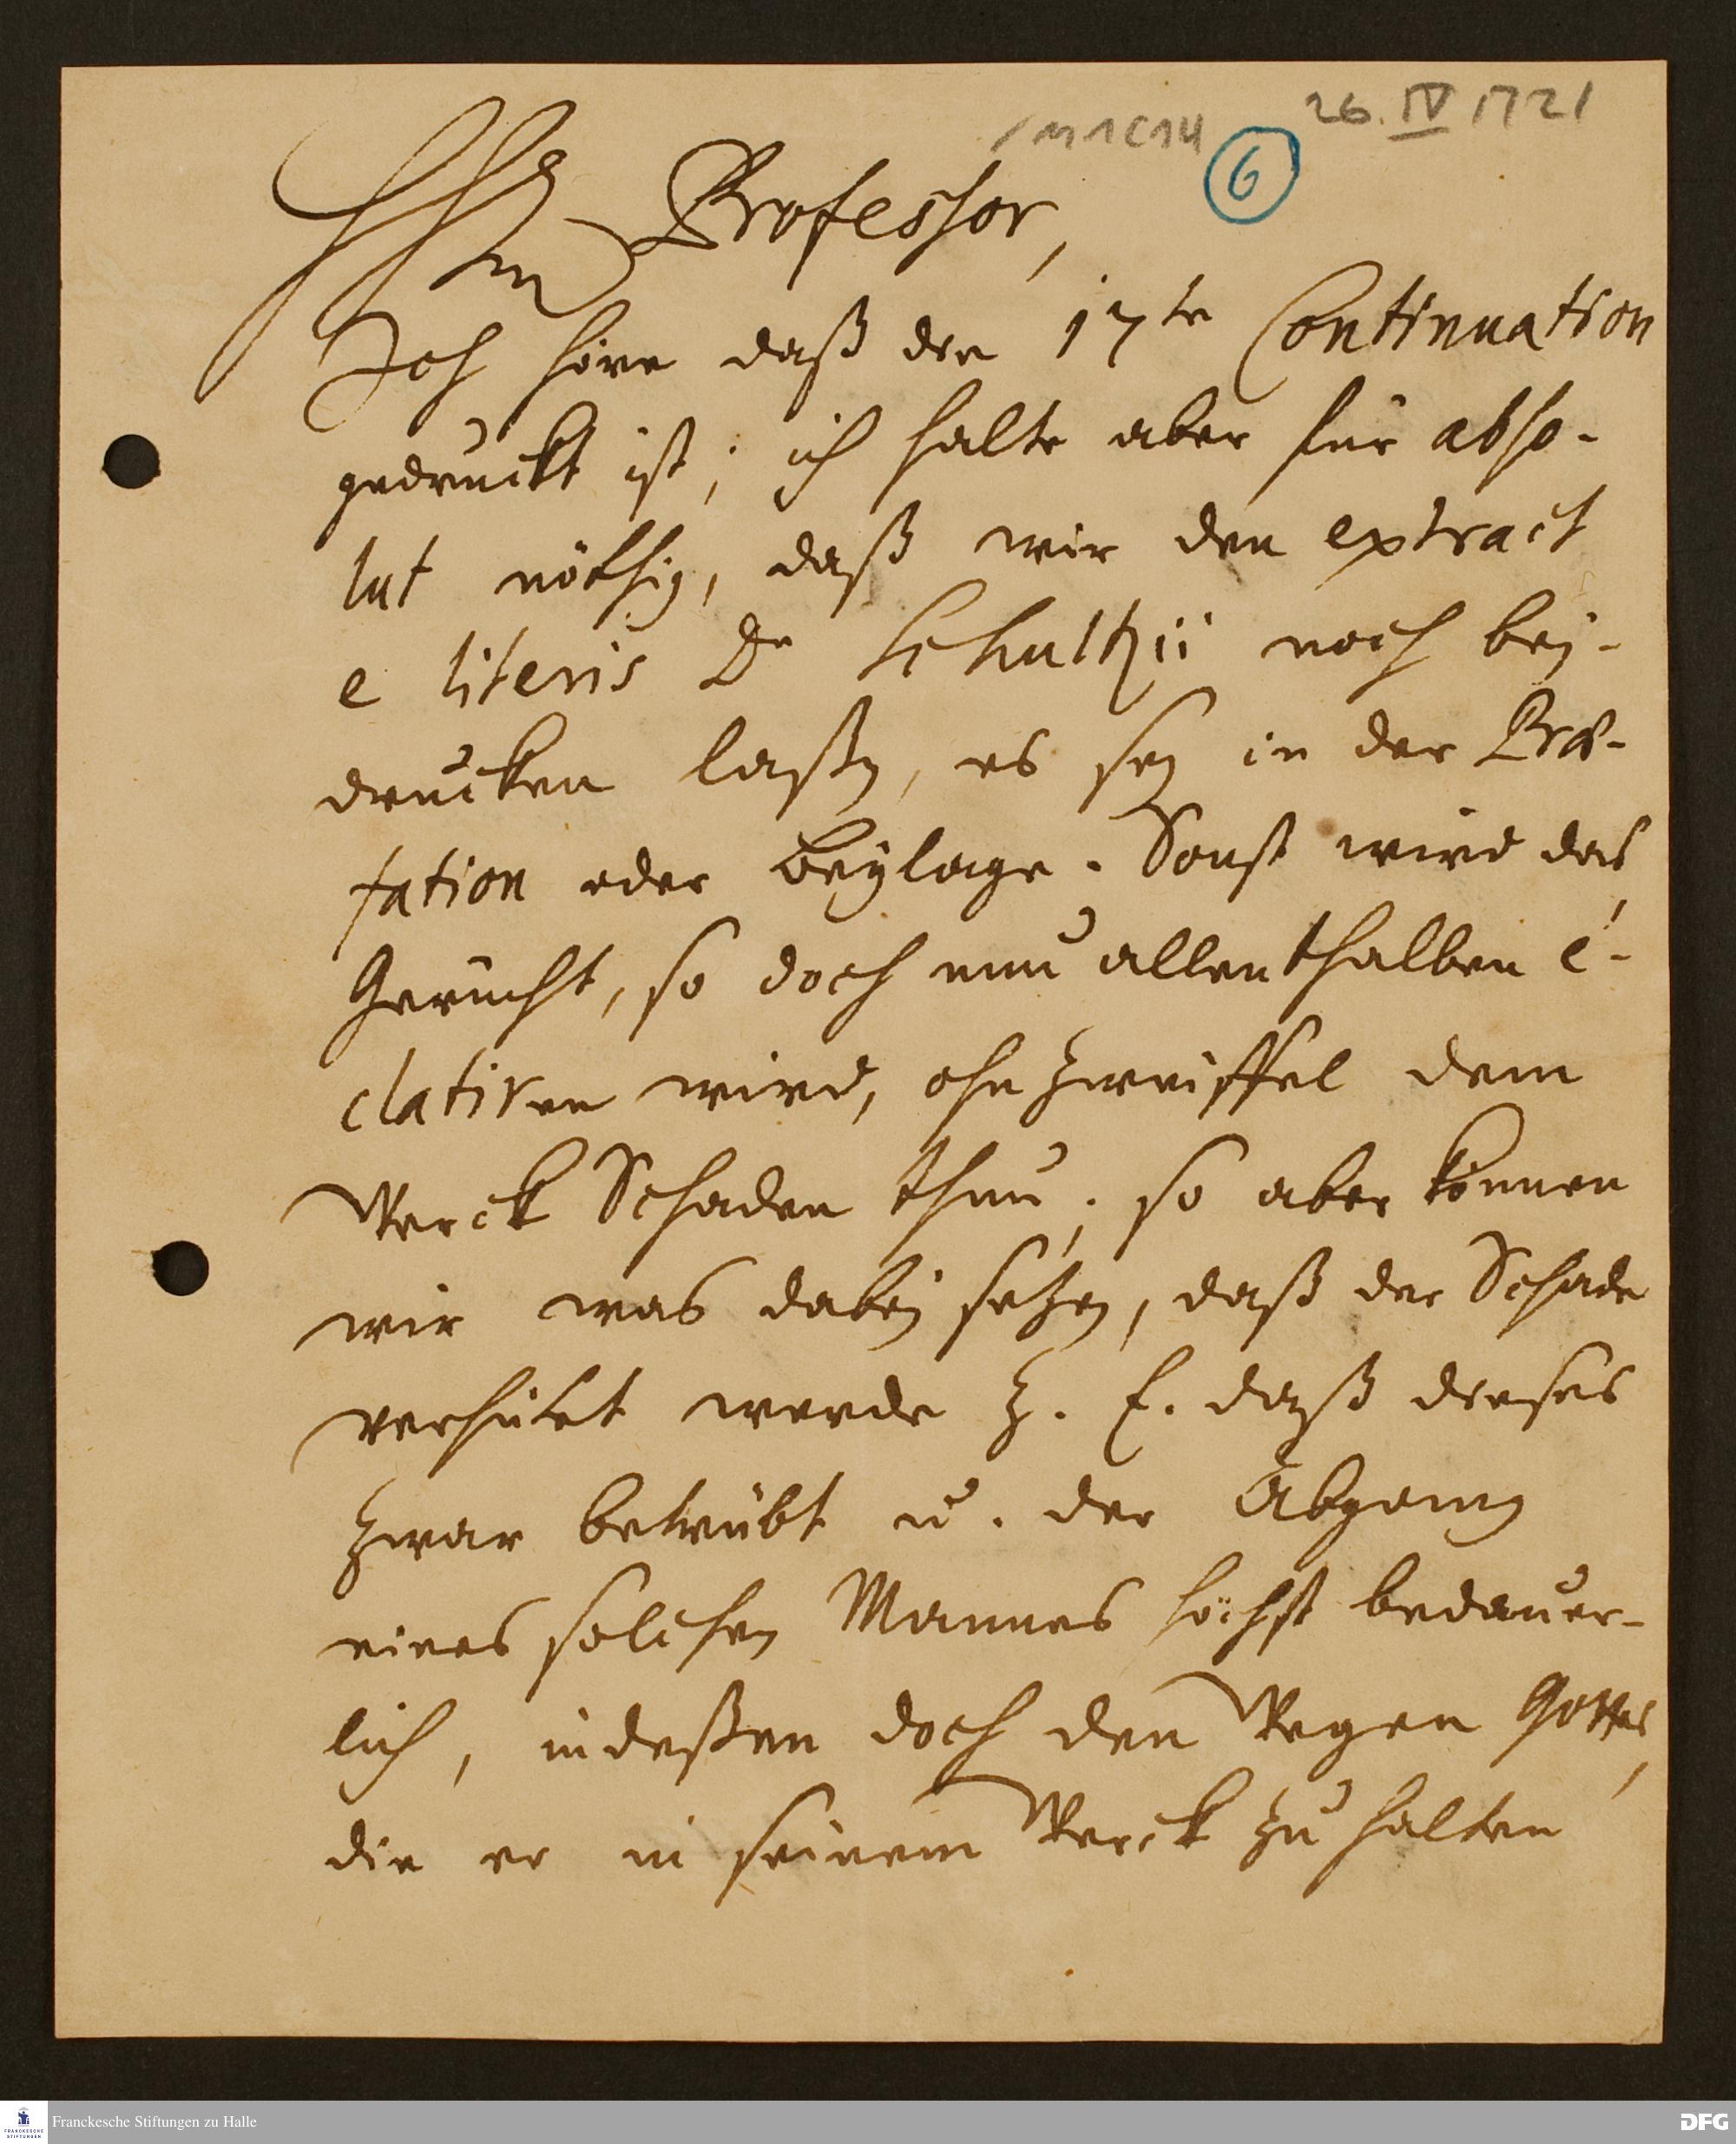 26. IV 1721
/ M 1 C 14
6
HErr Professor,
Ich höre daß die 17te Continuation
gedruckt ist; ich halte aber für abso-
lut nöthig, daß wir den extract
e literis Dn Schultzii noch bey-
drucken laßen, es sey in der Præ-
fation oder Beylage. Sonst wird das
Gerücht, so doch nun allenthalben é-
clatiren wird, ohn zweiffel dem
Werck Schaden thun; so aber können
wir was dabey setzen, daß der Schade
verhütet werde z. E. daß dieses
zwar betrübt u. der Abgang
eines solchen Mannes höchst bedauer-
lich, indeßen doch den Wegen Gottes,
die er in seinem Werck zu halten
Franckesche Stiftungen zu Halle
FRANCKESCHE
STIFTUNGEN
DFG